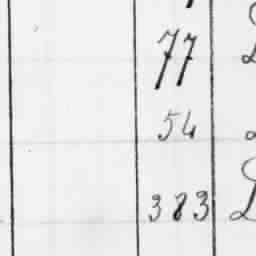 77
54
383